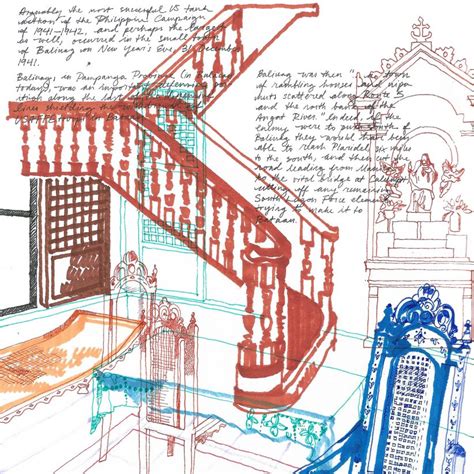 Arguably the most successful US tank
action of the Philippine Campaign
of 1941-1942, and perhaps the largest
as well, occurred in the small town
of Baliuag on New Year's Eve, 31 December
1941.
Baliuag, in Pampanga Province (in Bulacan
today), was an important defensive
along the
lines shielding the
USAFFE in Bataan.
Baliuag was then a town
of rambling houses and nipa
huts scattered along Route 5
and the north bank of the
Angat River. Indeed, if the
enemy were to push south of
Baliuag they would then be
able to reach Plaridel, six miles
to the south, and then cut the
road leading from Manila
to the vital bridge at Calumpit
cutting off any remaining
South Luzon Force elements
trying to make it to
Bataan.